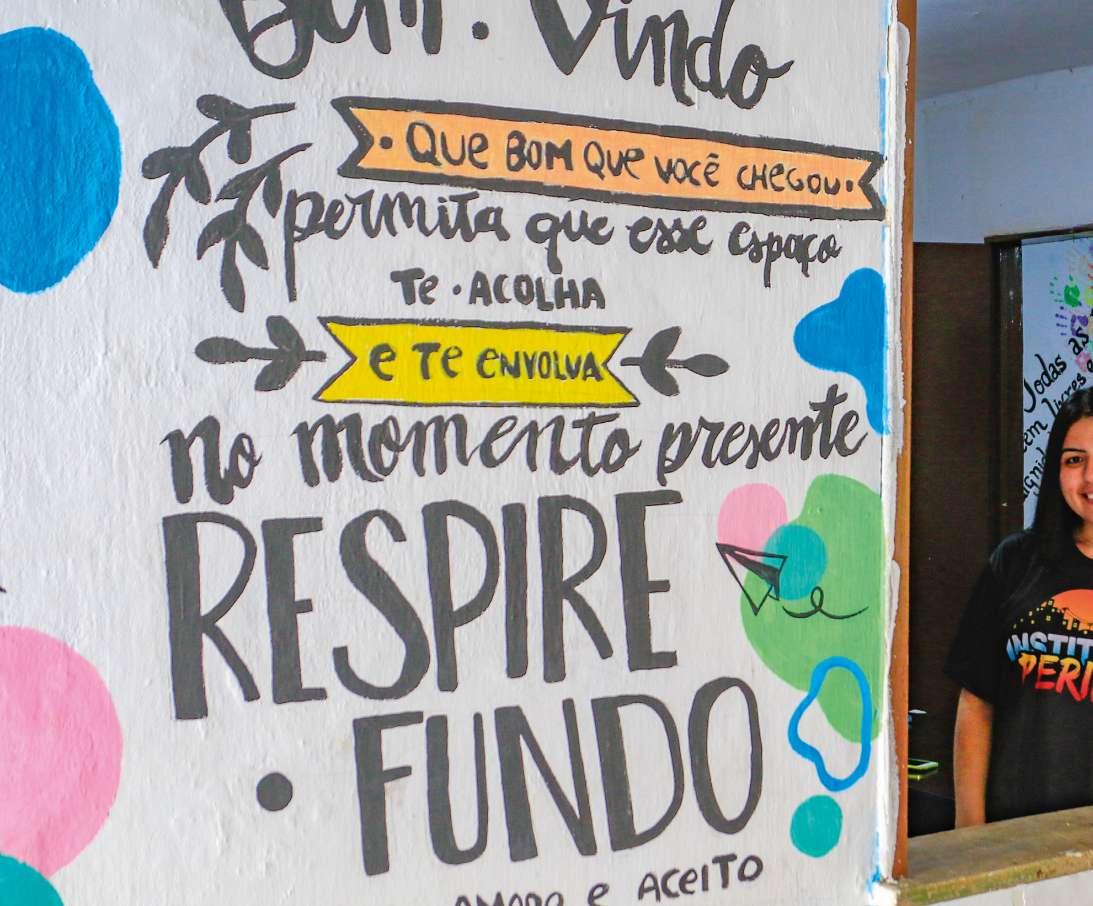 Bem. Vindo
• QUE BOM QUE VOCÊ CHEGOU •
permita que esse espaço
Te • ACOLHA
e Te ENVOLVA
no momento presente
RESPIRE
• FUNDO
AMADO e ACEITO
Todas as
em livres e
INSTIT
PERI